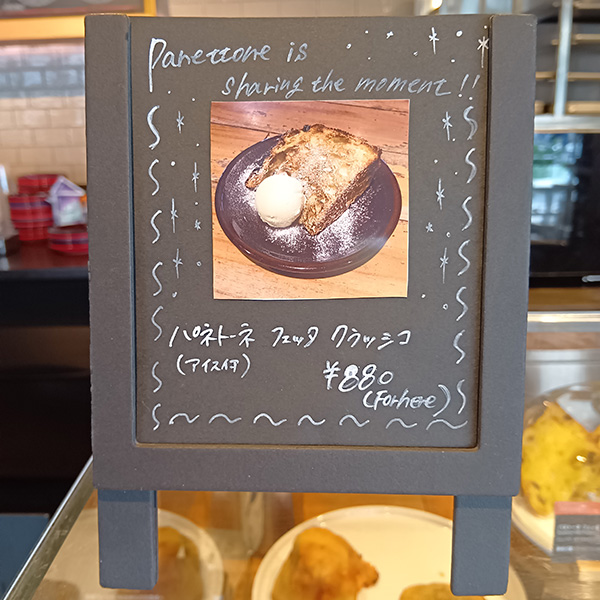 Panettone is
sharing the moment!!
パネトーネ フェッタ クラッシコ
(アイス付)
¥880
(For here)